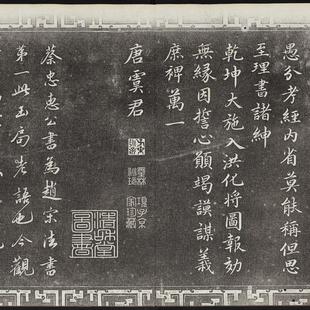 愚公考經內省莫能稱但思
至理書諸紳
乾坤大施入洪化將圖報効
無緣因誓心願竭謨謀義
庶裨萬一
唐虞君
蔡忠惠公書為趙宋法書
第一此玉局老語也今觀